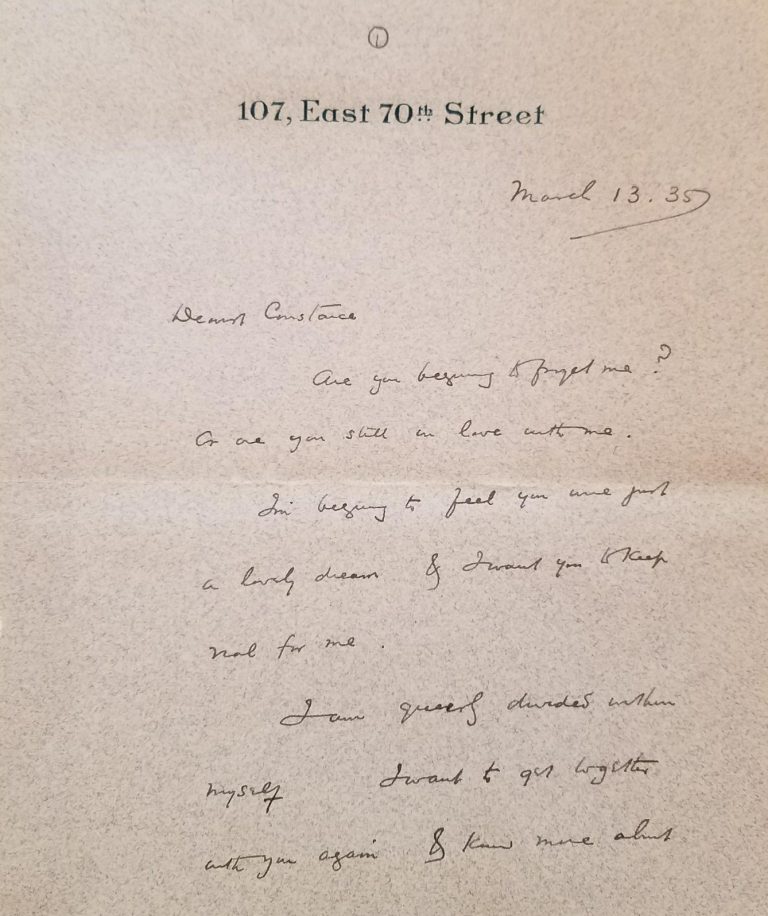 1
107, East 70th Street
March 13. 35
Dearest Constance
Are you beginning to forget me ?
Or are you still in love with me .
I'm beginning to feel you were just
a lovely dream & I want you to keep
real for me .
I am queerly divided within
myself I want to get together
with you again & know more about